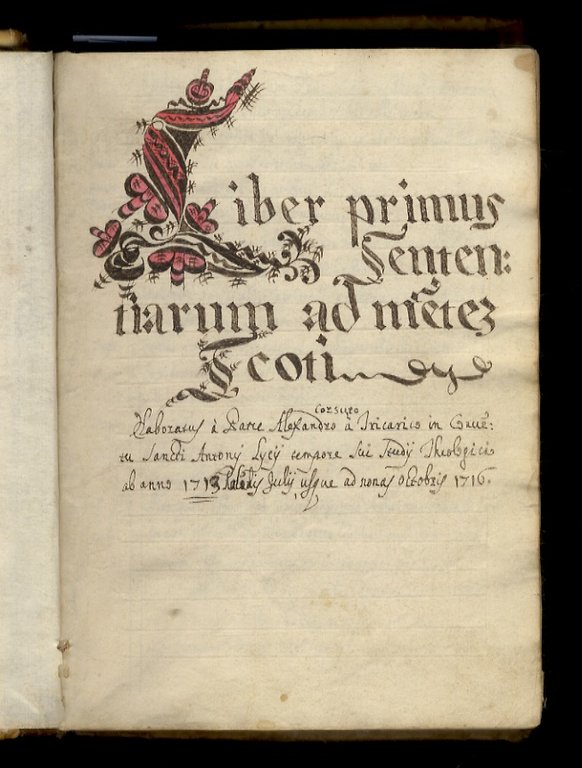 Liber primus
Senten:
tiarum ad mẽtez
Scoti
corsuto
Elaboratus à Patre Alexandro à Tricarico in Cõuẽ:
tu Sancti Antonij Lycij tempore sui studij Theologici
ab anno 1713 Kalẽdis Julij, usque ad nonas octobris 1716.